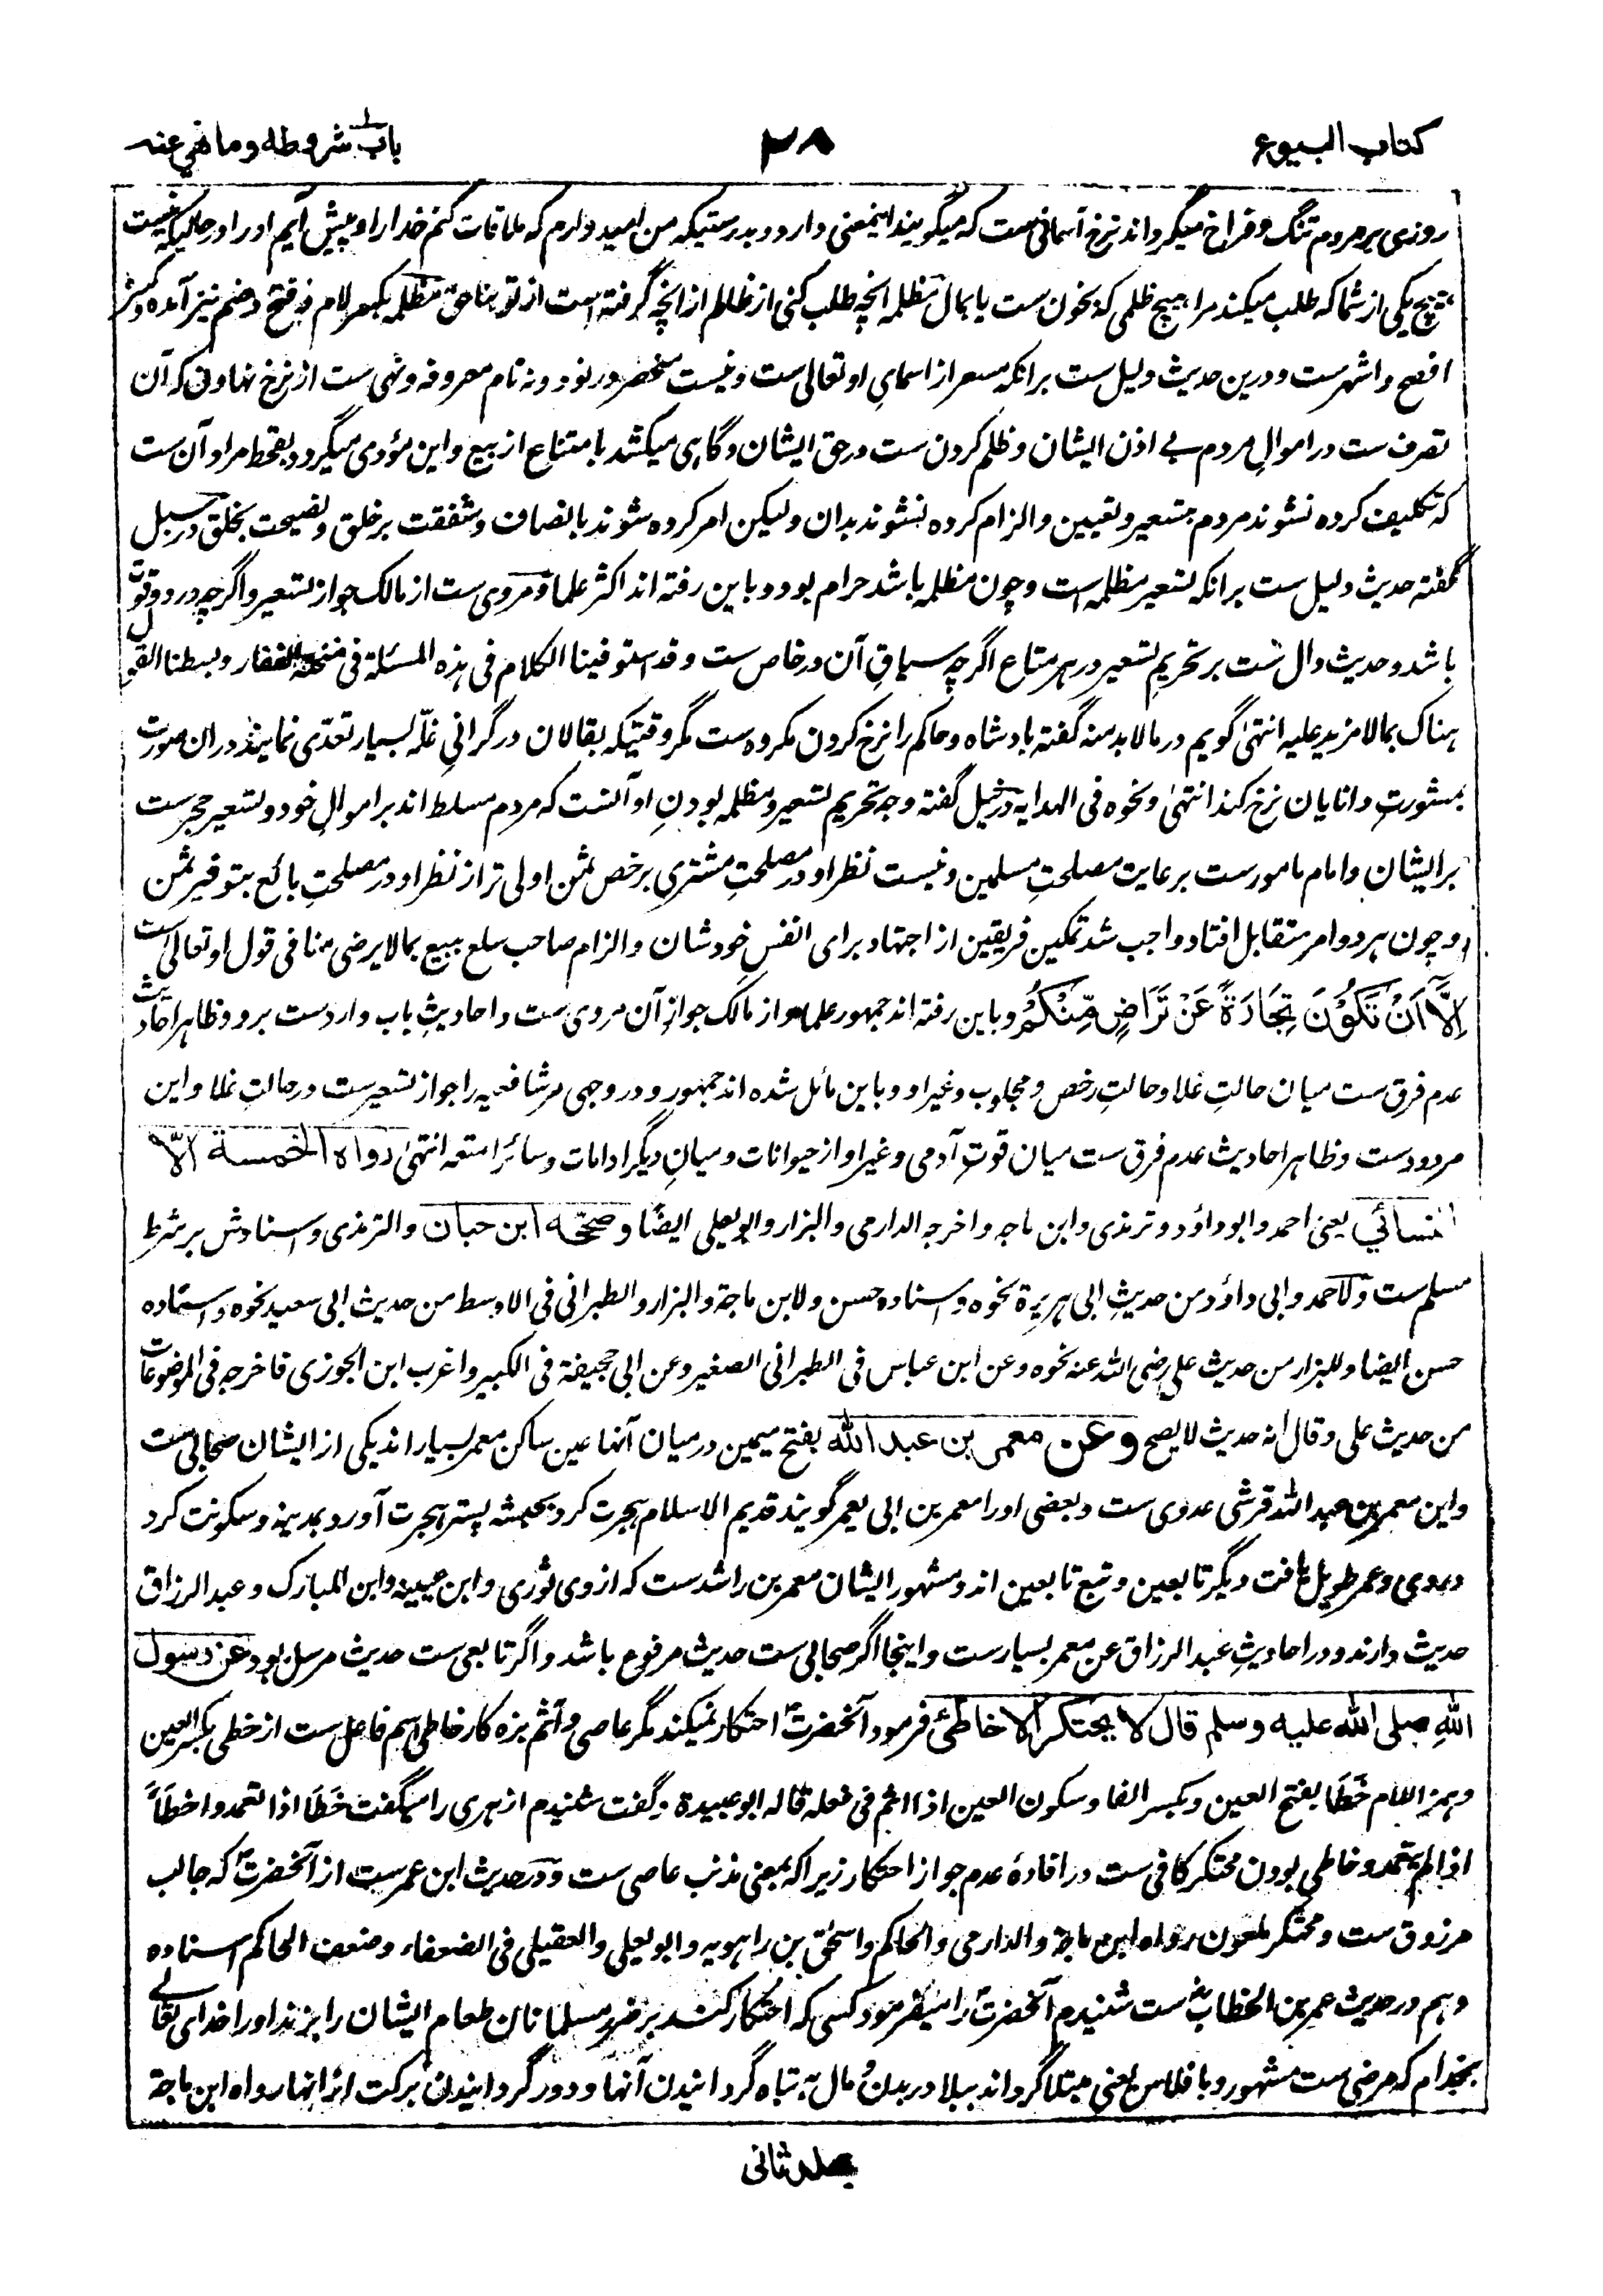 کتاب البیوع
۲۸
باب شروطه وما نهی عنه
روزی بر مردم تنگ و فراخ میگرداند نرخ آسمانی ست که میگویند اینمعنی دارد و بدرستیکه من امید دارم که ملاقات کنم خدا را و پیش آیم او را در حالیکه نیست
هیچ یکی از شما که طلب میکند مرا بهیچ ظلمی که بخون ست یا بمال مظلمه انچه طلب کنی از ظالم از انچه گرفته است از تو بناحق مظلمه بکسر لام و فتح و ضم نیز آمده و کسر
افصح و اشهر ست و درین حدیث دلیل ست برانکه مسعر از اسمای او تعالی ست و نیست منحصر در نود و نه نام معروفه و نهی ست از نرخ نهادن که آن
تصرف ست در اموالِ مردم بے اذن ایشان و ظلم کردن ست در حق ایشان و گاهی میکشد بامتناع از بیع و این مؤدی میگردد بقحط مراد آن ست
که تکلیف کرده نشوند مردم بتسعیر و تعیین و الزام کرده نشوند بدان و لیکن امر کرده شوند بانصاف و شفقت بر خلق و نصیحت بخلق در سبل
گفته حدیث دلیل ست برانکه تسعیر مظلمه است و چون مظلمه باشد حرام بود و باین رفته اند اکثر علما و مروی ست از مالک جواز تسعیر و اگرچه در دو قوت
باشد و حدیث دال ست بر تحریمِ تسعیر در هر متاع اگرچه سیاقِ آن در خاص ست و قد استوفینا الکلام فی هذه المسئلة فی منحة الغفار و بسطنا القول
هناک بمالا مزید علیه انتهیٰ گویم در مالابد منه گفته بادشاه و حاکم را نرخ کردن مکروه ست مگر وقتیکه بقالان در گرانیِ غلّه بسیار تعدّی نمایند دران صورت
بمشورتِ دانایان نرخ کند انتهیٰ و نحوه فی الهدایه در نیل گفته وجه تحریم تسعیر و مظلمه بودنِ او آنست که مردم مسلط اند بر اموالِ خود و تسعیر حجر ست
بر ایشان و امام مامور ست برعایت مصلحتِ مسلمین و نیست نظر او در مصلحتِ مشتری برخص ثمن اولی تر از نظر او در مصلحتِ بائع بتوفیر ثمن
و چون هر دو امر متقابل افتاد واجب شد تمکین فریقین از اجتهاد برای انفسِ خودشان و الزام صاحب سلع ببیع بمالا یرضی منافی قول او تعالی ست
اِلَّآ اَنْ تَكُوْنَ تِجَارَةً عَنْ تَرَاضٍ مِّنْكُمْ و باین رفته اند جمهور علما و از مالک جوازِ آن مروی ست و احادیثِ باب وارد ست برو و ظاهر احادیث
عدم فرق ست میان حالتِ غلا و حالتِ رخص و مجلوب و غیر او و باین مائل شده اند جمهور و در وجهی مر شافعیه را جواز تسعیر ست در حالتِ غلا و این
مردود ست و ظاهر احادیث عدم فرق ست میان قوتِ آدمی و غیر او از حیوانات و میانِ دیگر ادامات و سائر امتعه انتهیٰ رواه الخمسة الّا
النسائی یعنی احمد و ابو داؤد و ترمذی و ابن ماجه و اخرجه الدارمی و البزار و ابویعلی ایضًا و صححّه ابن حبان و الترمذی و اسنادش بر شرط
مسلم ست و لاحمد و ابی داؤد من حدیثِ ابی هریرة نحوه و اسناده حسن و لابن ماجة و البزار و الطبرانی فی الاوسط من حدیث ابی سعید نحوه و اسناده
حسن ایضا و للبزار من حدیث علی رضی الله عنه نحوه و عن ابن عباس فی الطبرانی الصغیر و عن ابی جحیفة فی الکبیر و اغرب ابن الجوزی فاخرجه فی الموضوعات
من حدیث علی و قال انه حدیث لا یصح وعن معمر بن عبد الله بفتح میمین در میان آنها عین ساکن معمر بسیار اند یکی از ایشان صحابی ست
و این معمر بن عبد الله قرشی عدوی ست و بعضی او را معمر بن ابی یعمر گویند قدیم الاسلام هجرت کرد بحبشه پستر هجرت آورد بمدینه و سکونت کرد
در وی و عمر طویل یافت دیگر تابعین و تبع تابعین اند و مشهور ایشان معمر بن راشد ست که از وی ثوری و ابن عیینه و ابن المبارک و عبد الرزاق
حدیث دارند و در احادیثِ عبد الرزاق عن معمر بسیار ست و اینجا اگر صحابی ست حدیث مرفوع باشد و اگر تابعی ست حدیث مرسل بود عن رسول
اللهِ صلی الله علیه وسلم قال لا یحتکر الا خاطئ فرمود آنحضرت ؐ احتکار نمیکند مگر عاصی و آثم بزه کار خاطی اسم فاعل ست از خطی بکسر العین
و همز اللام خَطَا بفتح العین و بکسر الفا و سکون العین اذا اثم فی فعله قاله ابو عبیدة و گفت شنیدم ازهری را میگفت خَطَا اذا تعمد و اخطَاً
اذا لم یتعمد و خاطی بودن محتکر کافی ست در افادۀ عدم جواز احتکار زیرا که بمعنی مذنب عاصی ست و در حدیث ابن عمر ست از آنحضرتؐ که جالب
مرزوق ست و محتکر ملعون رواه ابن ماجة و الدارمی و الحاکم و اسحٰق بن راهویه و ابو یعلی و العقیلی فی الضعفاء و ضعف الحاکم اسناده
و هم در حدیث عمر بن الخطابؓ ست شنیدم آنحضرتؐ را میفرمود کسی که احتکار کند بر ضرر مسلمانان طعام ایشان را بزند او را خدای تعالےٰ
بجذام که مرضی ست مشهور و بافلاس یعنی مبتلا گرداند ببلا در بدن و مال به تباه گردانیدن آنها و دور گردانیدن برکت از انها رواه ابن ماجة
جلد ثانی